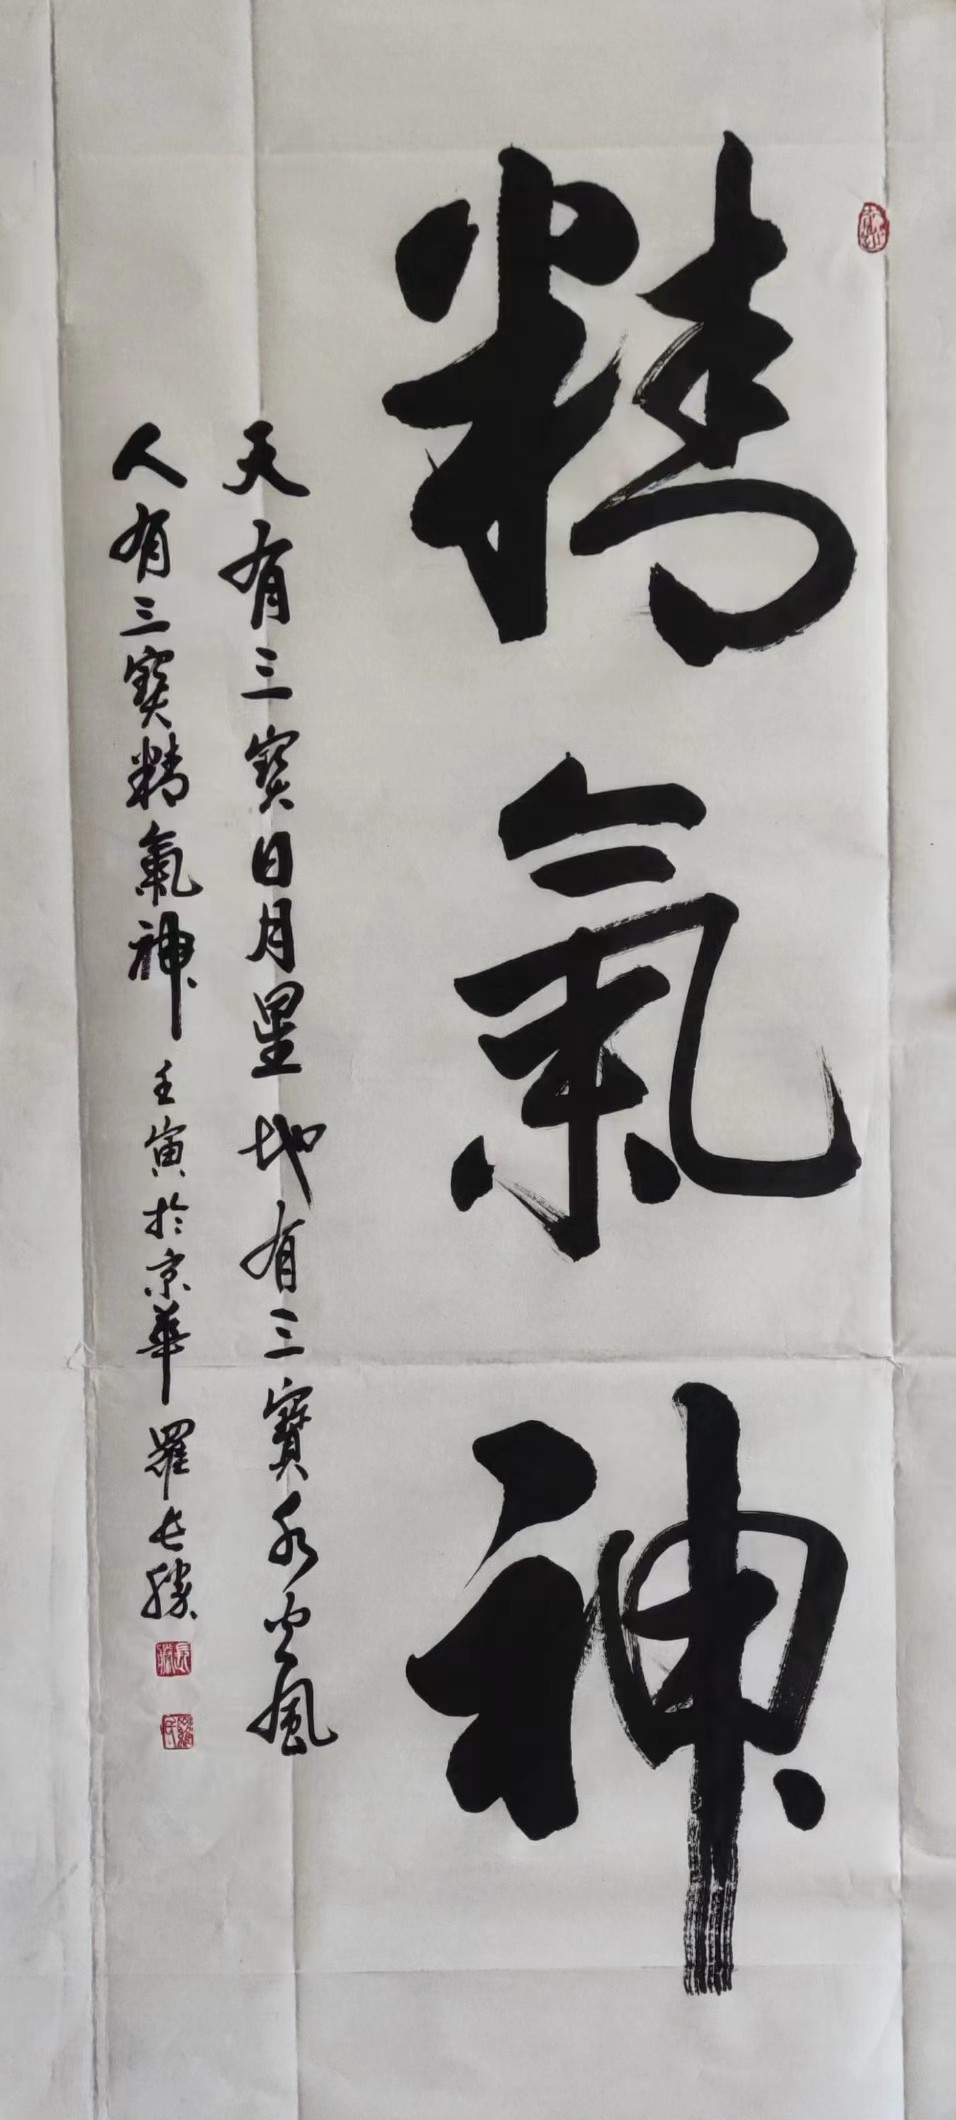 精氣神
天有三寶日月星地有三寶水火風
人有三寶精氣神壬寅於京華羅長勝